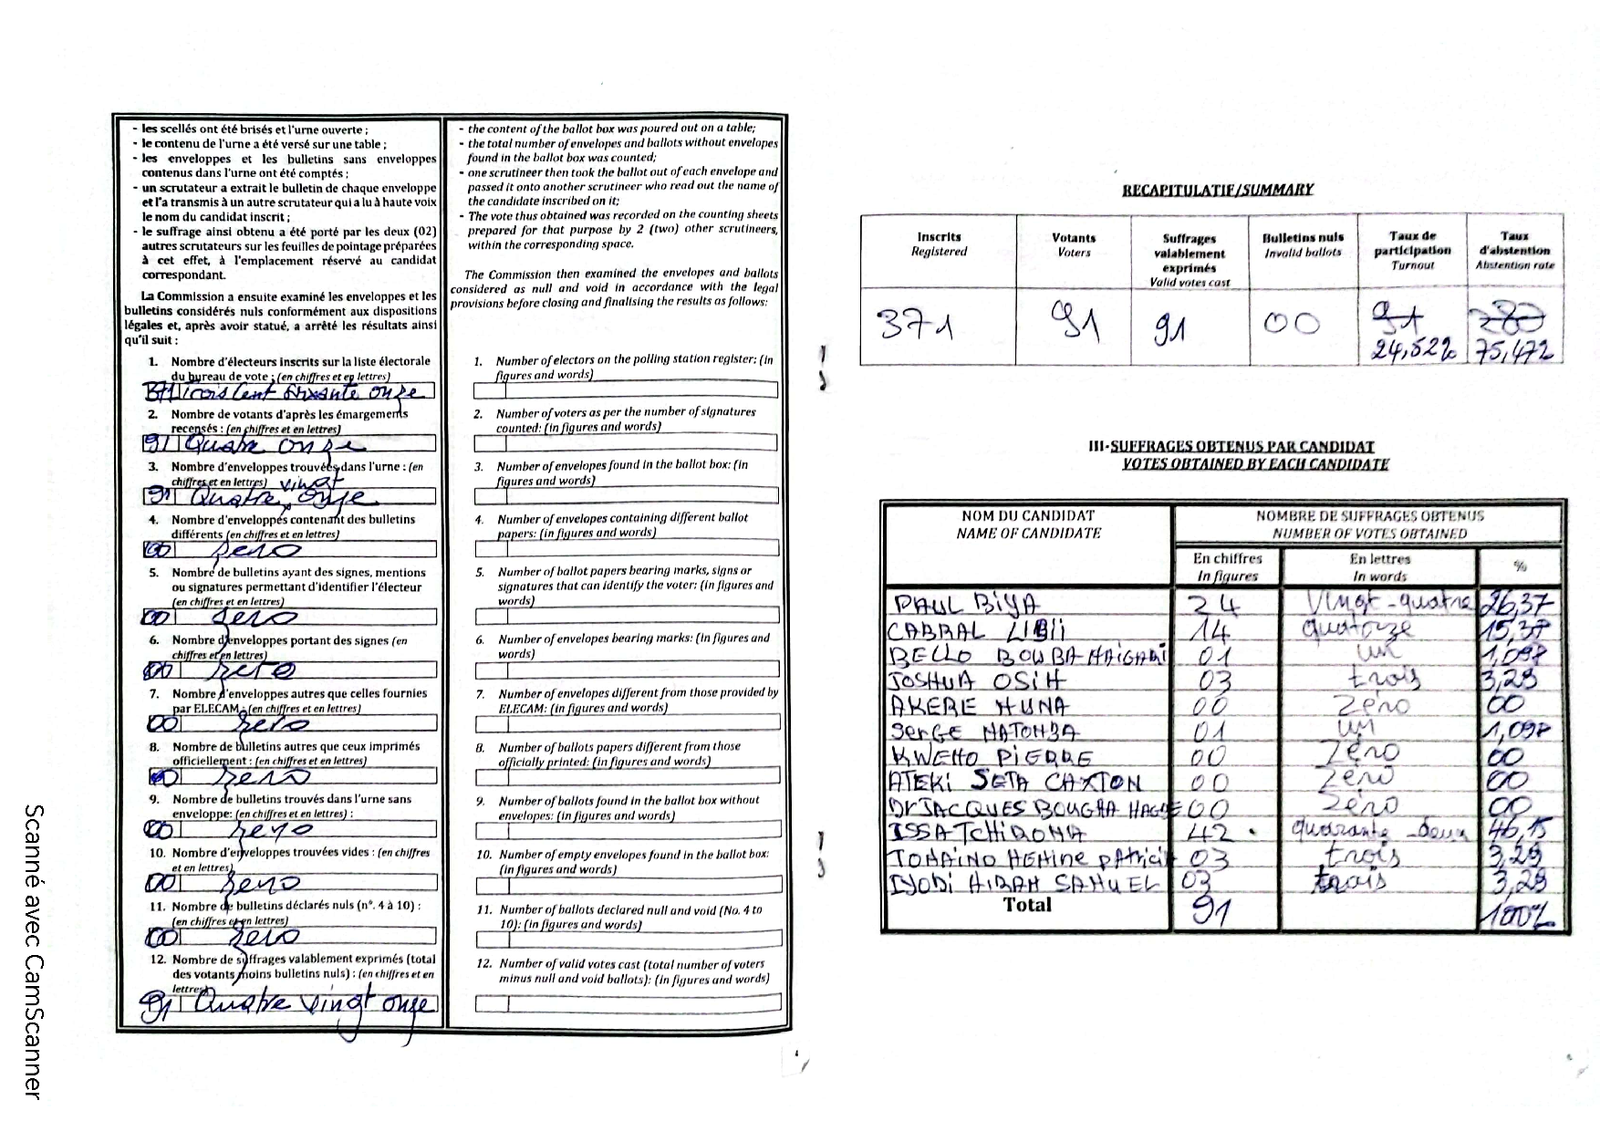 - les scellés ont été brisés et l'urne ouverte ;
- le contenu de l'urne a été versé sur une table ;
- les enveloppes et les bulletins sans enveloppes
contenus dans l'urne ont été comptés ;
- un scrutateur a extrait le bulletin de chaque enveloppe
et l'a transmis à un autre scrutateur qui a lu à haute voix
le nom du candidat inscrit ;
- le suffrage ainsi obtenu a été porté par les deux (02)
autres scrutateurs sur les feuilles de pointage préparées
à cet effet, à l'emplacement réservé au candidat
correspondant.
La Commission a ensuite examiné les enveloppes et les
bulletins considérés nuls conformément aux dispositions
légales et, après avoir statué, a arrêté les résultats ainsi
qu'il suit :
1. Nombre d'électeurs inscrits sur la liste électorale
du bureau de vote : (en chiffres et en lettres)
371 trois cent soixante onze
2. Nombre de votants d'après les émargements
recensés : (en chiffres et en lettres)
91 Quatre onze
3. Nombre d'enveloppes trouvées dans l'urne : (en
chiffres et en lettres) vingt
91 Quatre onze
4. Nombre d'enveloppes contenant des bulletins
différents (en chiffres et en lettres)
00 zero
5. Nombre de bulletins ayant des signes, mentions
ou signatures permettant d'identifier l'électeur
(en chiffres et en lettres)
00 zero
6. Nombre d'enveloppes portant des signes (en
chiffres et en lettres)
00 zero
7. Nombre d'enveloppes autres que celles fournies
par ELECAM : (en chiffres et en lettres)
00 zero
8. Nombre de bulletins autres que ceux imprimés
officiellement : (en chiffres et en lettres)
00 zero
9. Nombre de bulletins trouvés dans l'urne sans
enveloppe: (en chiffres et en lettres) :
00 zero
10. Nombre d'enveloppes trouvées vides : (en chiffres
et en lettres)
00 zero
11. Nombre de bulletins déclarés nuls (n°. 4 à 10) :
(en chiffres et en lettres)
00 zero
12. Nombre de suffrages valablement exprimés (total
des votants moins bulletins nuls) : (en chiffres et en
lettres)
91 Quatre vingt onze
- the content of the ballot box was poured out on a table;
- the total number of envelopes and ballots without envelopes
found in the ballot box was counted;
- one scrutineer then took the ballot out of each envelope and
passed it onto another scrutineer who read out the name of
the candidate inscribed on it;
- The vote thus obtained was recorded on the counting sheets
prepared for that purpose by 2 (two) other scrutineers,
within the corresponding space.
The Commission then examined the envelopes and ballots
considered as null and void in accordance with the legal
provisions before closing and finalising the results as follows:
1. Number of electors on the polling station register: (in
figures and words)
2. Number of voters as per the number of signatures
counted: (in figures and words)
3. Number of envelopes found in the ballot box: (in
figures and words)
4. Number of envelopes containing different ballot
papers: (in figures and words)
5. Number of ballot papers bearing marks, signs or
signatures that can identify the voter: (in figures and
words)
6. Number of envelopes bearing marks: (in figures and
words)
7. Number of envelopes different from those provided by
ELECAM: (in figures and words)
8. Number of ballots papers different from those
officially printed: (in figures and words)
9. Number of ballots found in the ballot box without
envelopes: (in figures and words)
10. Number of empty envelopes found in the ballot box:
(in figures and words)
11. Number of ballots declared null and void (No. 4 to
10): (in figures and words)
12. Number of valid votes cast (total number of voters
minus null and void ballots): (in figures and words)
RECAPITULATIF/SUMMARY
Inscrits Registered
Votants Voters
Suffrages valablement exprimés Valid votes cast
Bulletins nuls Invalid ballots
Taux de participation Turnout
Taux d'abstention Abstention rate
371 91 91 00 91 280
24,52% 75,47%
III-SUFFRAGES OBTENUS PAR CANDIDAT
VOTES OBTAINED BY EACH CANDIDATE
NOM DU CANDIDAT
NAME OF CANDIDATE
NOMBRE DE SUFFRAGES OBTENUS
NUMBER OF VOTES OBTAINED
En chiffres In figures
En lettres In words
%
PAUL BIYA 24 Vingt-quatre 26,37
CABRAL LIBII 14 quatorze 15,37
BELLO BOUBA HAIGARI 01 un 1,098
JOSHUA OSIH 03 trois 3,29
AKERE MUNA 00 Zéro 00
Serge MATOMBA 01 un 1,098
KWEMO PIERRE 00 Zéro 00
ATEKI SETA CAXTON 00 Zéro 00
Dr JACQUES BOUGHA HAGBE 00 Zéro 00
ISSA TCHIROMA 42 quarante-deux 46,15
TOMAINO HEMINE PATRICIA 03 trois 3,29
IYODI HIRAM SAMUEL 03 trois 3,29
Total 91 100%
Scanné avec CamScanner